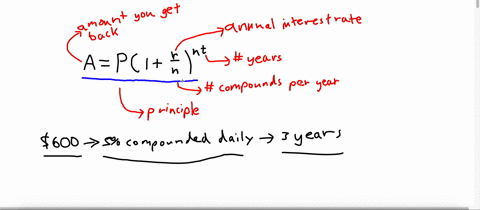 amount you get
back
annual interest rate
A = P(1 + r/n)^nt
# years
# compounds per year
principle
$600 → 5% compounded daily → 3 years